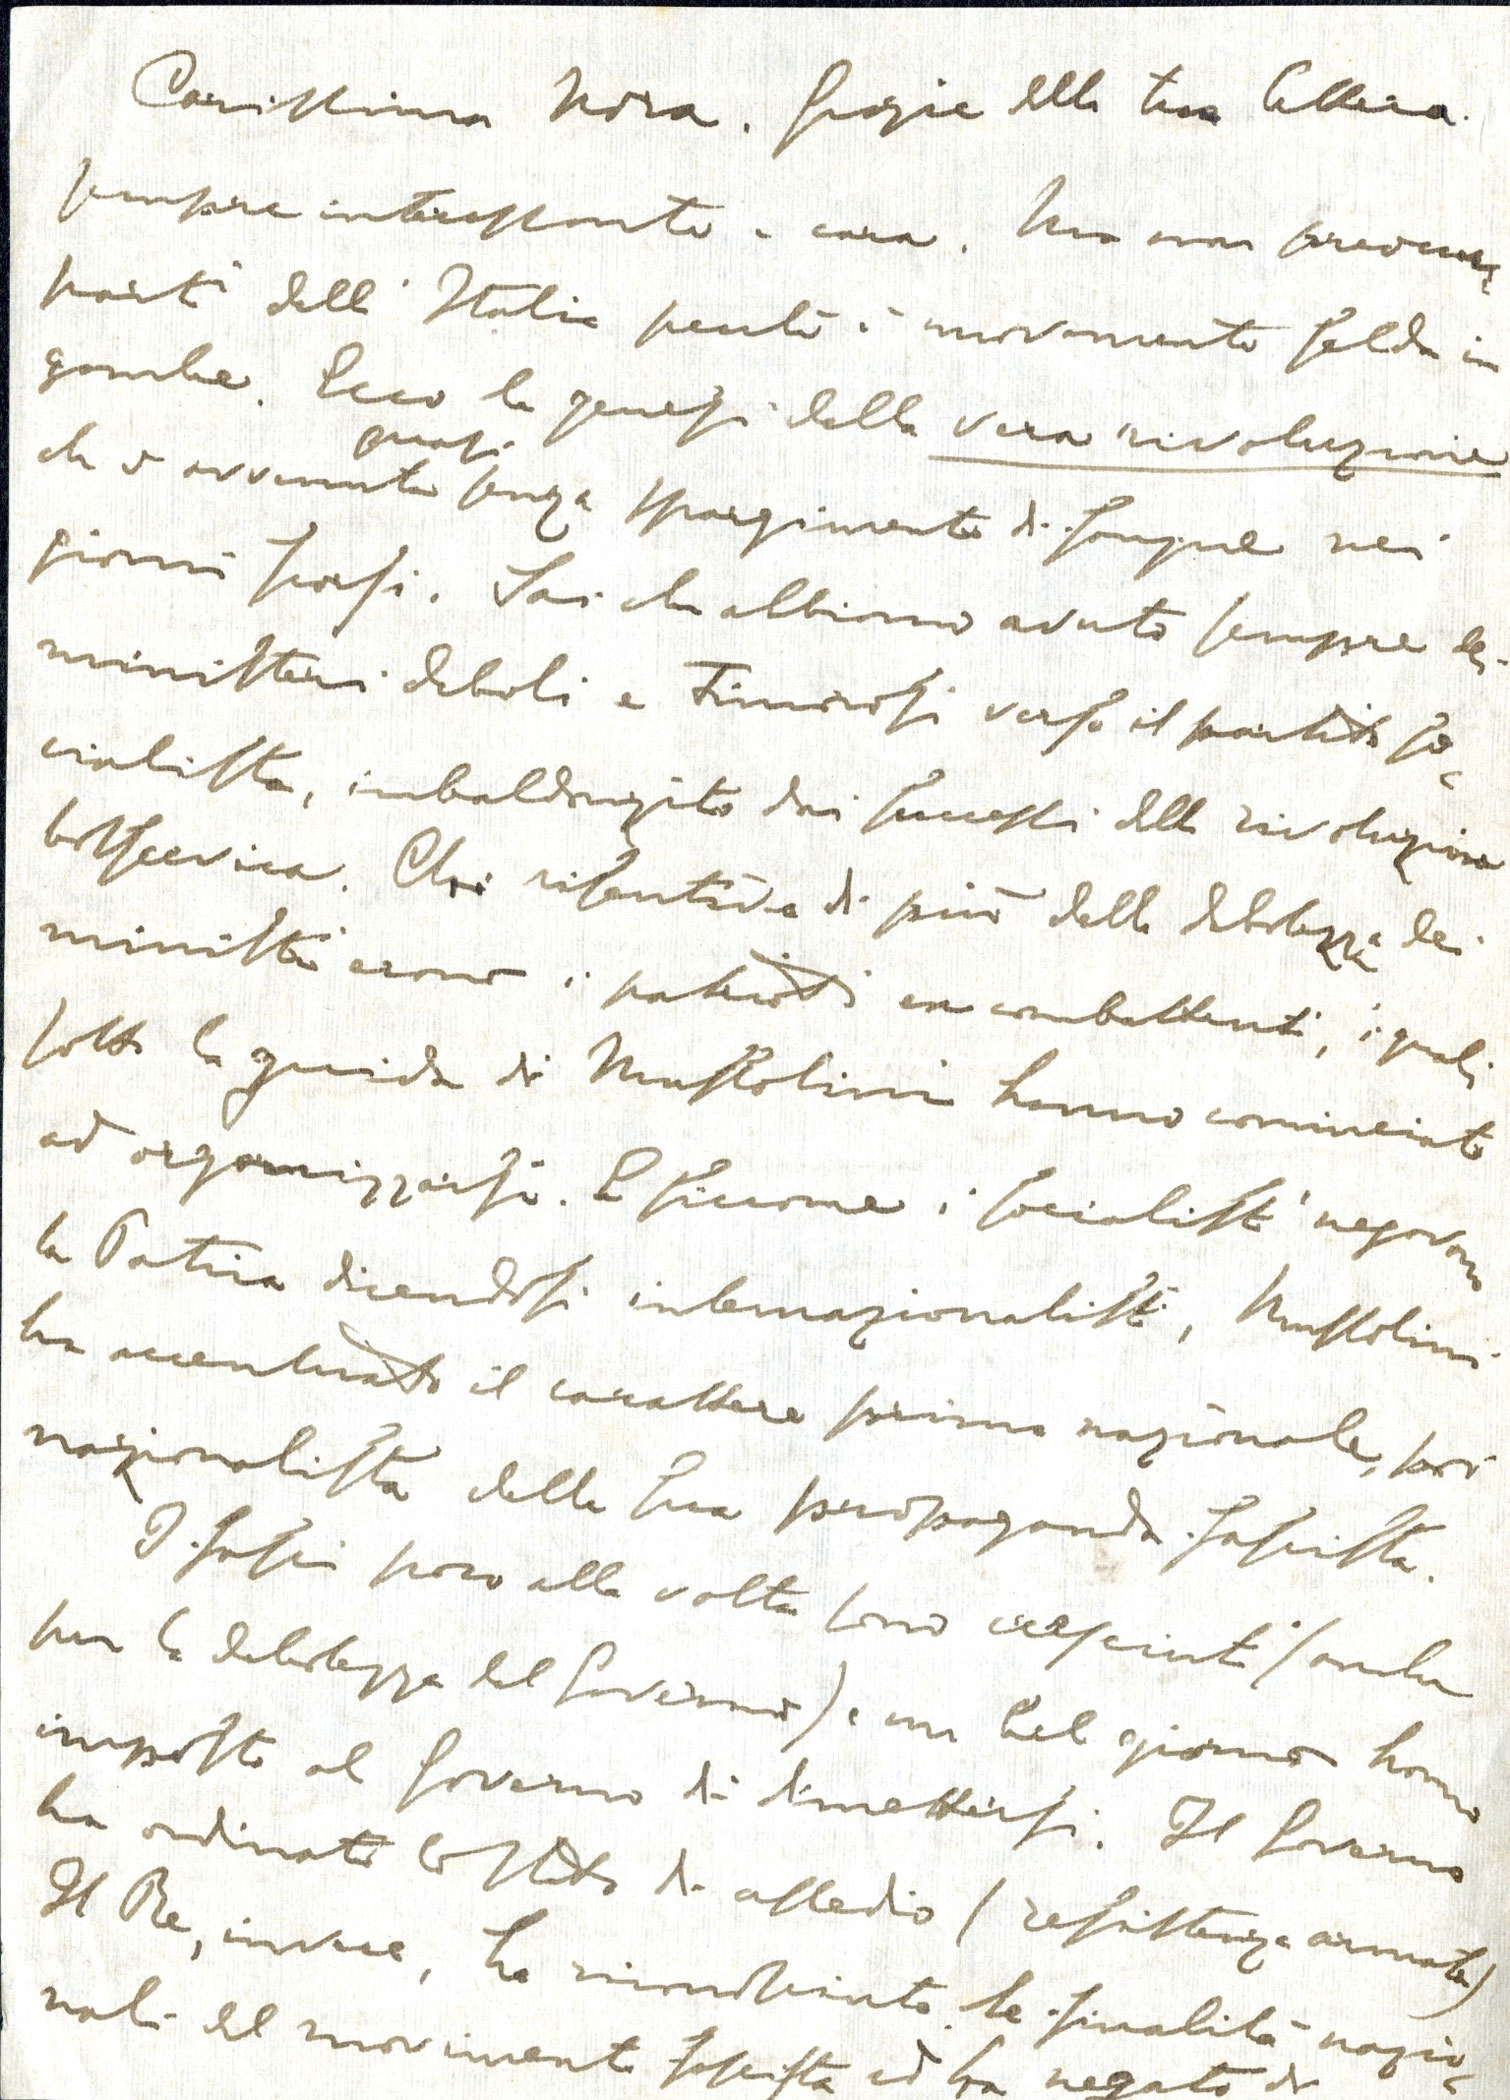 Carissima Nora. Grazie della tua lettera
sempre interessante e cara. Ma non
parti dell'Italia movimento in
gamba. Ecco la genesi della vera rivoluzione
quasi
che è avvenuta senza spargimento di sangue nei
giorni scorsi. Sai che abbiamo avuto sempre dei
ministeri deboli e timorosi verso il partito so-
cialista, imbaldanzito dai successi della rivoluzione
bolscevica. Chi risentiva di più della debolezza dei
ministri erano i patrioti ex combattenti, i quali
sotto la guida di Mussolini hanno cominciato
ad organizzarsi. E siccome i socialisti negavano
la Patria dicendosi internazionalisti, Mussolini
ha accentuato il carattere prima nazionale, poi
nazionalista della sua propaganda fascista.
I fasci poco alla volta sono cresciuti (anche
per la debolezza del Governo) e un bel giorno hanno
imposto al Governo di dimettersi. Il Governo
ha ordinato lo stato di assedio (resistenza armata)
Il Re, invece, ha riconosciuto le finalità nazio-
nali del movimento fascista ed ha negato di